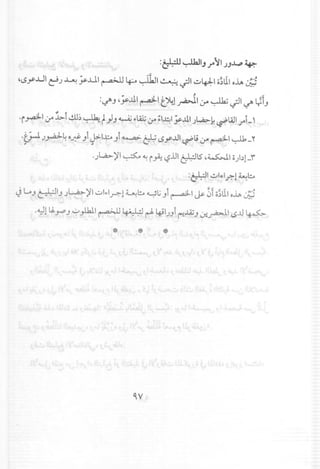 جهة صدور الأمر والطلب للتبليغ:
تُبيِّن هذه المادَّة الجهات التي ينبعث الطَّلب منها للخصم المدعوِّ بعد رفع الدعوى،
وأنَّها هي التي تطلب من المُحضِر إبلاغ الخصم المدعوِّ، وهي:
١-أمر القاضي بإحضار المدعوِّ ابتداءً من تلقاء نفسه ولو لم يطلب ذلك أحدٌ من الخصوم.
٢-طلب الخصم من قاضي الدعوى تبليغ خصمه أو متداخل أو غيره بالحضور لمسوِّغ.
٣-إدارة المحكمة، كالتبليغ الذي يقوم به مكتب الإحضار.
متابعة إجراءات التبليغ:
تُبيِّن هذه المادَّة أنَّ على الخصم أو نائبه متابعة إجراءات الإحضار والتبليغ وما في
حكمها لدى المحضرين وتقديم أوراقها لهم لتبليغها للخصم المطلوب وصولها إليه.
* * *
٩٧